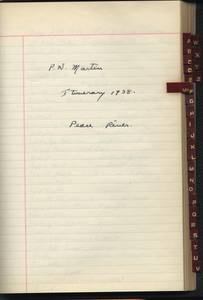 P. W. Martin
Itinerary 1938.
Peace River.